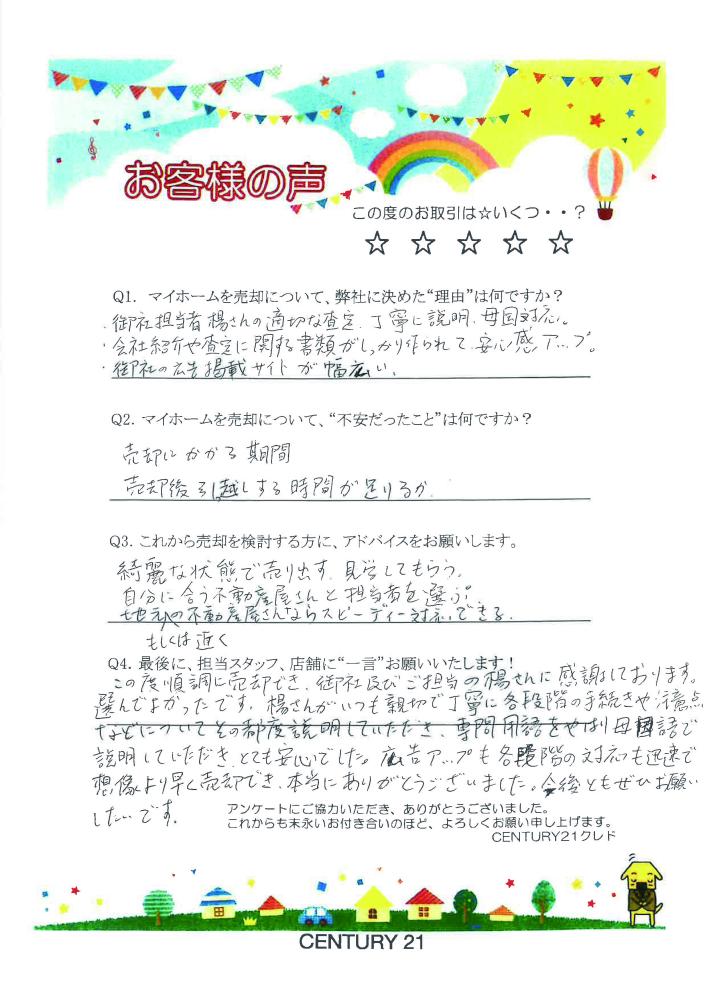 お客様の声
この度のお取引は☆いくつ・・？
☆ ☆ ☆ ☆ ☆
Q1. マイホームを売却について、弊社に決めた“理由”は何ですか？
・御社担当者楊さんの適切な査定、丁寧に説明、母国対応。
・会社紹介や査定に関する書類がしっかり作られて安心感アップ。
・御社の広告掲載サイトが幅広い。
Q2. マイホームを売却について、“不安だったこと”は何ですか？
売却にかかる期間
売却後引越しする時間が足りるか.
Q3. これから売却を検討する方に、アドバイスをお願いします。
綺麗な状態で売り出す、見学してもらう。
自分に合う不動産屋さんと担当者を選ぶ。
地元の不動産屋さんならスピーディー対応できる.
もしくは近く
Q4. 最後に、担当スタッフ、店舗に“一言”お願いいたします！
この度順調に売却でき、御社及びご担当の楊さんに感謝しております。
選んでよかったです。楊さんがいつも親切で丁寧に各段階の手続きや注意点
などについてその都度説明していただき、専門用語をやはり母国語で
説明していただき、とても安心でした。広告アップも各段階の対応も迅速で
想像より早く売却でき、本当にありがとうございました。今後ともぜひお願い
したいです.
アンケートにご協力いただき、ありがとうございました。
これからも末永いお付き合いのほど、よろしくお願い申し上げます。
CENTURY21クレド
CENTURY 21